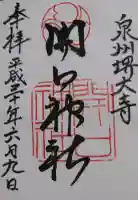 泉州堺大寺
開口神社
奉拝 平成二十年六月九日